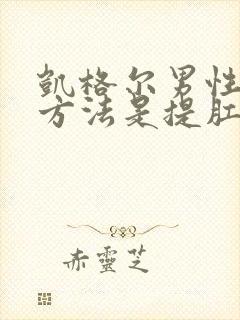 凯格尔男性
方法是提肛
赤靈芝